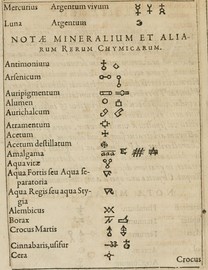 Mercurius Argentum vivum
Luna Argentum
NOTÆ MINERALIUM ET ALIA-
RUM RERUM CHYMICARUM.
Antimonium
Arsenicum
Auripigmentum
Alumen
Aurichalcum
Atramentum
Acetum
Acetum destillatum
Amalgama
Aqua vitæ
Aqua Fortis seu Aqua se-
paratoria
Aqua Regis seu aqua Sty-
gia
Alembicus
Borax
Crocus Martis
Cinnabaris, usifur
Cera
Crocus